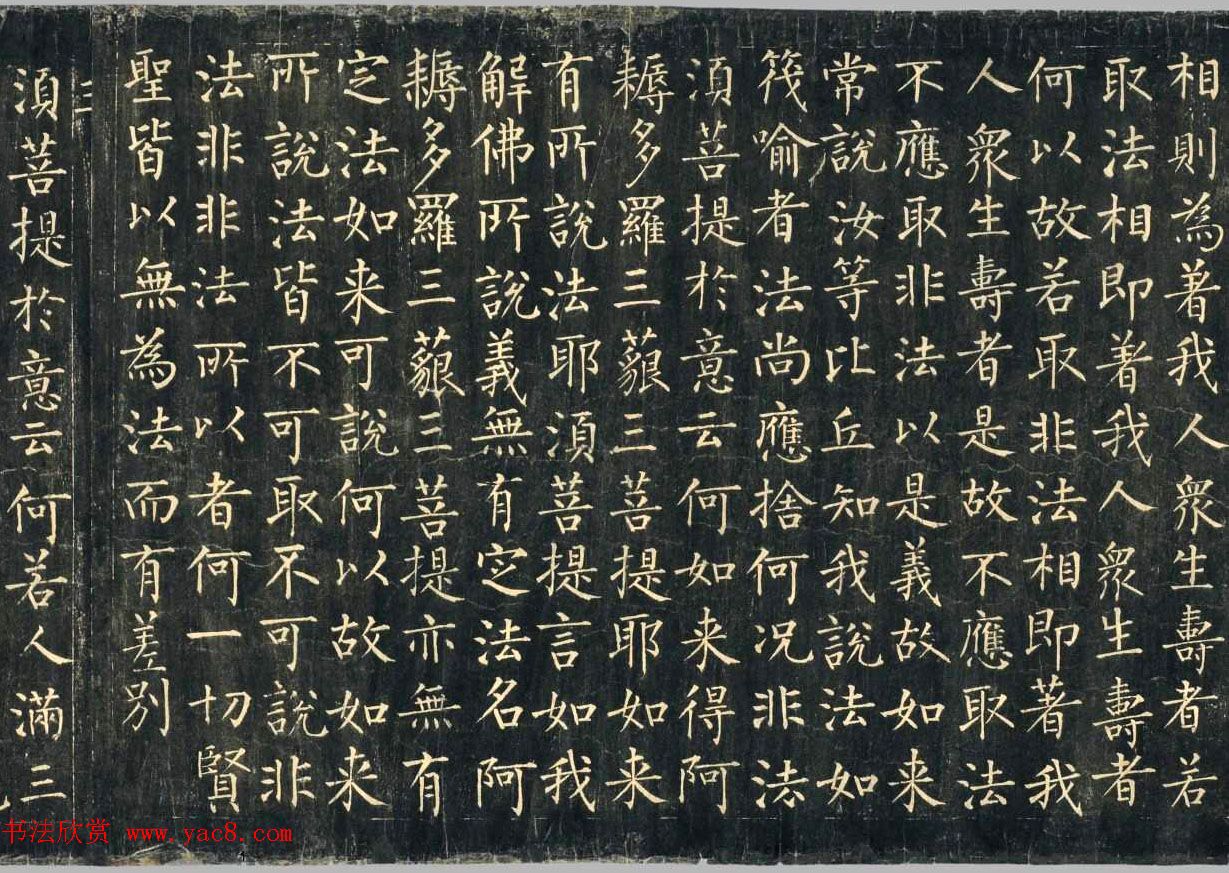 相則為著我人衆生壽者若
取法相即著我人衆生壽者
何以故若取非法相即著我
人衆生壽者是故不應取法
不應取非法以是義故如来
常說汝等比丘知我說法如
筏喻者法尚應捨何况非法
須菩提於意云何如来得阿
耨多羅三藐三菩提耶如来
有所說法耶須菩提言如我
解佛所說義無有定法名阿
耨多羅三藐三菩提亦無有
定法如来可說何以故如来
所說法皆不可取不可說非
法非非法所以者何一切賢
聖皆以無為法而有差别
須菩提於意云何若人滿三
书法欣赏 www.yac8.com